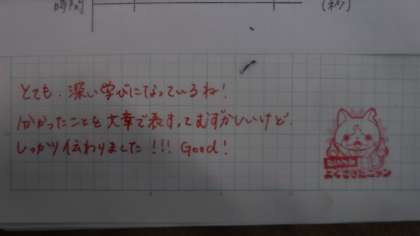 時刻 (秒)
とても、深い学びになっているね!
分かったことを文章で表すってむずかしいけど、
しっかり伝わりました!!! Good!
よくできたニャン